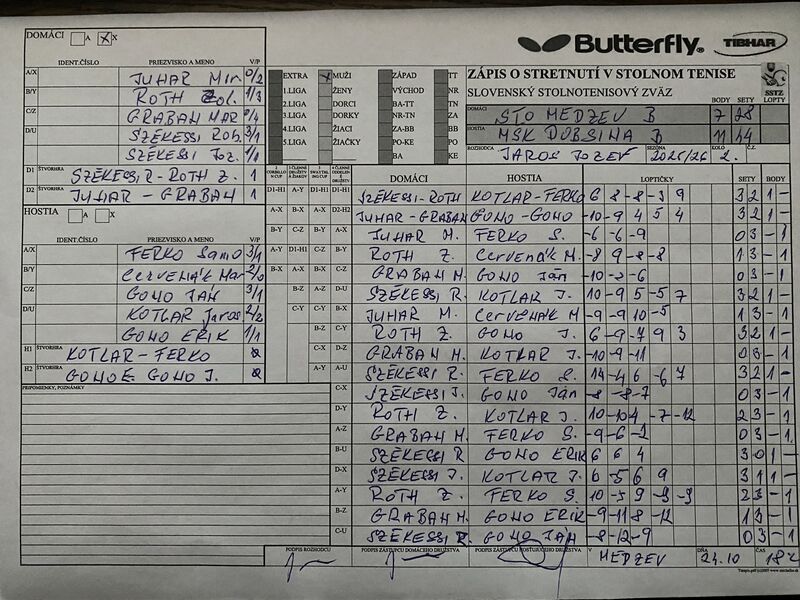 DOMÁCI A X X
IDENT.ČÍSLO PRIEZVISKO A MENO V/P
A/X JUHAR Mir 0/2
B/Y ROTH Zol. 1/3
C/Z GRABAN MAR 0/4
D/U SZÉKESSI Rob. 3/1
SZÉKESSI Joz. 1/1
D1 ŠTVORHRA SZÉKESSI R - ROTH Z. 1
D2 ŠTVORHRA JUHAR - GRABAN 1
HOSTIA A X
IDENT.ČÍSLO PRIEZVISKO A MENO V/P
A/X FERKO Samo 3/1
B/Y Červenák Mar 2/0
C/Z GONO JÁN 3/1
D/U KOTLAR Jaros 2/2
GONO ERIK 1/1
H1 ŠTVORHRA KOTLAR - FERKO
H2 ŠTVORHRA GONO E. GONO J.
PRIPOMIENKY, POZNÁMKY
EXTRA MUŽI ZÁPAD TT
1.LIGA ŽENY VÝCHOD NR
2.LIGA DORCI BA-TT TN
3.LIGA DORKY NR-TN ZA
4.LIGA ŽIACI ZA-BB BB
5.LIGA ŽIAČKY PO-KE PO
BA KE
Butterfly TIBHAR
ZÁPIS O STRETNUTÍ V STOLNOM TENISE
SLOVENSKÝ STOLNOTENISOVÝ ZVÄZ
SSTZ
BODY SETY LOPTY
DOMÁCI STO MEDZEV B 7 28
HOSTIA MSK DOBSINA B 11 44
ROZHODCA JAROS JOZEF SEZÓNA 2025/26 KOLO 2. Č.Z.
DOMÁCI HOSTIA LOPTIČKY SETY BODY
D1-H1 A-Y D1-H1 D1-H1 SZÉKESSI - ROTH KOTLAR - FERKO 6 8 -8 -3 9 3 2 1 -
A-X B-X A-X D2-H2 JUHAR - GRABAN GONO - GONO -10 -9 4 5 4 3 2 1 -
B-Y C-Z B-Y A-X JUHAR M. FERKO S. -6 -6 -9 0 3 - 1
A-Y D1-H1 C-Z B-Y ROTH Z. Červenák M. -8 9 -8 -8 1 3 - 1
B-X A-X B-X C-Z GRABAN M. GONO Ján 0 3 - 1
B-Z A-Z D-U SZÉKESSI R. KOTLAR J. 10 -9 5 -5 7 3 2 1 -
C-Y C-Y B-X JUHAR M. Červenák M -9 -9 10 -5 1 3 - 1
B-Z C-Y ROTH Z. GONO J. 6 -9 -7 9 3 3 2 1 -
C-X D-Z GRABAN M. KOTLAR J. -10 -9 -11 0 3 - 1
A-Y A-U SZÉKESSI R. FERKO S. 3 2 1 -
C-X SZÉKESSI J. GONO Ján -8 -8 -7 0 3 - 1
D-Y ROTH Z. KOTLAR J. 2 3 - 1
A-Z GRABAN M. FERKO S. 0 3 - 1
B-U SZÉKESSI R GONO ERIK 6 6 4 3 0 1 -
D-X SZÉKESSI J. KOTLAR J. 3 1 1 -
A-Y ROTH Z. FERKO S. 2 3 - 1
B-Z GRABAN M. GONO ERIK -9 -11 8 -12 1 3 - 1
C-U SZÉKESSI R. GONO JÁN -8 -12 -9 0 3 - 1
PODPIS ROZHODCU PODPIS ZÁSTUPCU DOMÁCEHO DRUŽSTVA PODPIS ZÁSTUPCU HOSŤUJÚCEHO DRUŽSTVA V MEDZEV DŇA 24.10 ČAS